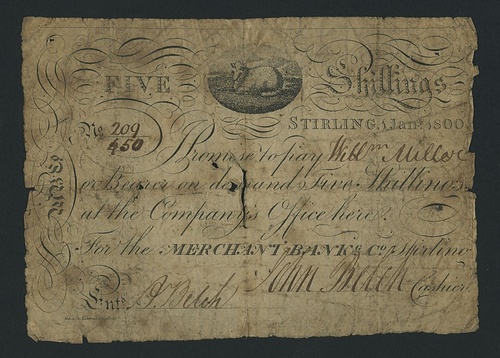 FIVE Shillings
STIRLING, 1 Jany. 1800.
No. 209/450
Promise to pay Willm Miller
or Bearer on demand Five Shillings
at the Company's Office here.
For the MERCHANT BANKg Co. Stirling
Entd. J. Belch John Belch Cashier